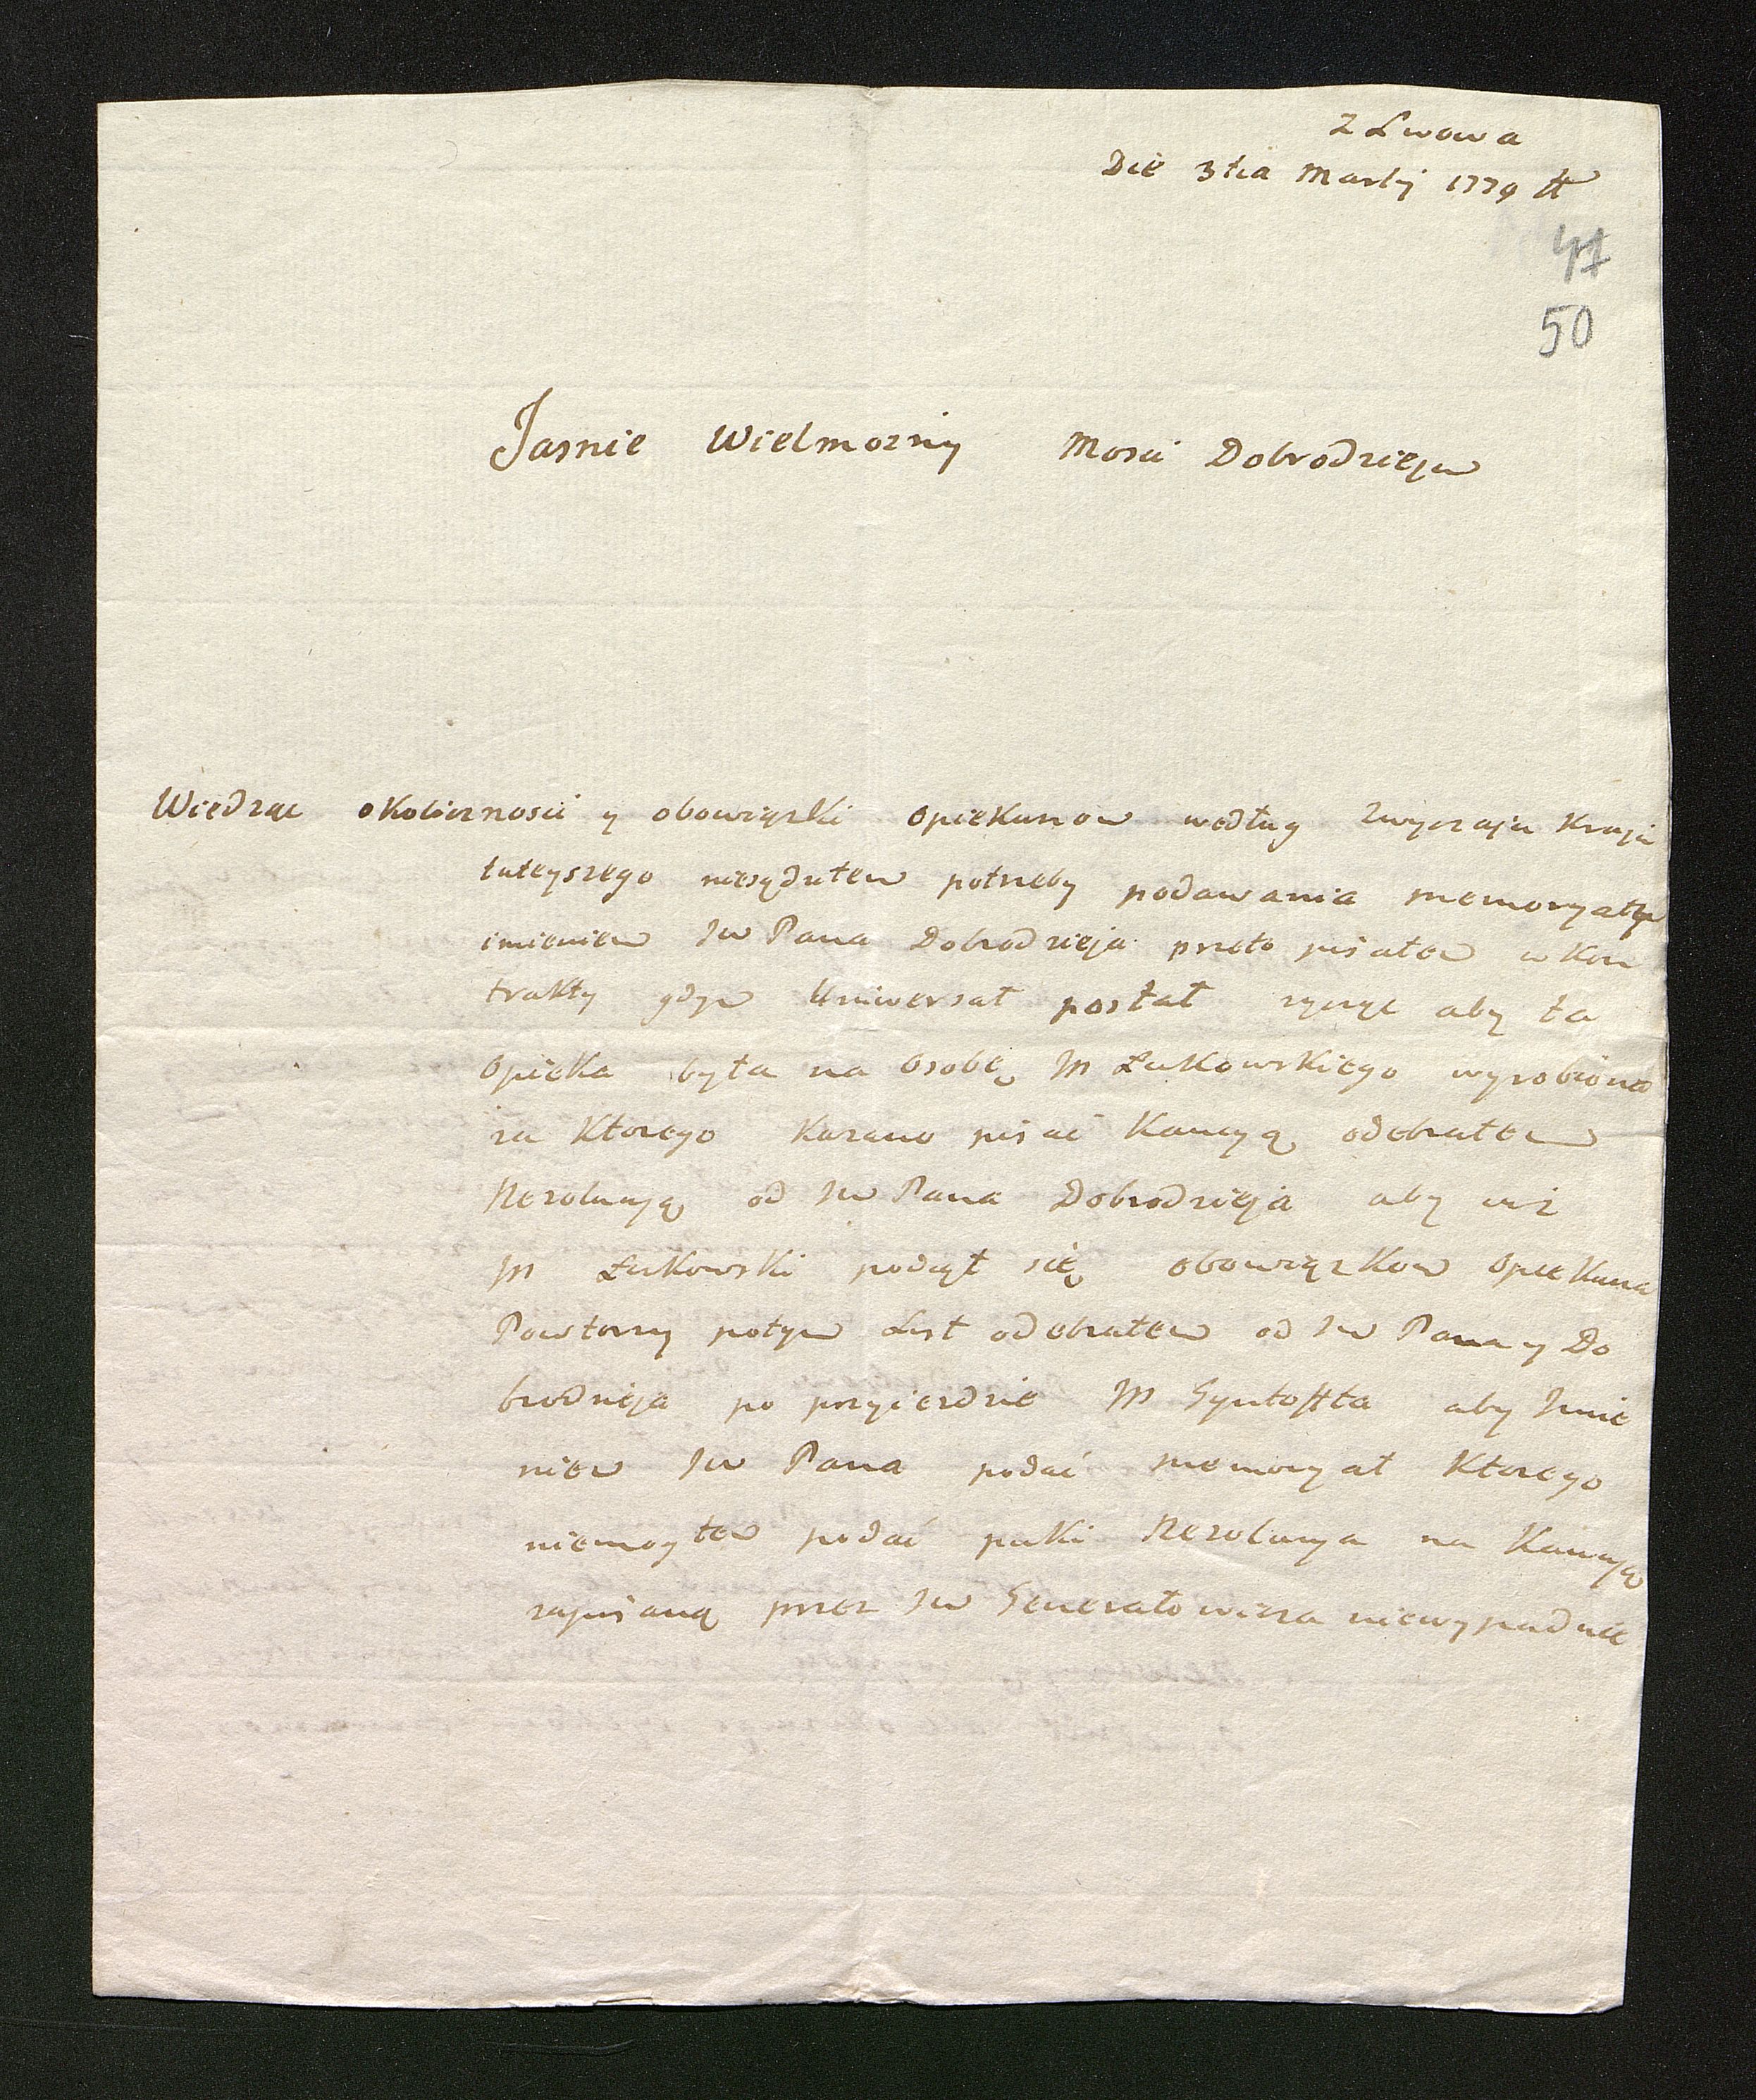 z Lwowa
Die 3tia Martij 1779 A
41
50
Jasnie Wielmozny Mosci Dobrodzieju
Wiedząc okolicznosci y obowiązki Opiekunow według zwyczaju Kraju
tuteyszego niesądziłem potrzeby podawania memoryału
imieniem Jw Pana Dobrodzieja przeto pisałem w Kon
trakty gdym Uniwersał posłał zycząc aby ta
Opieka była na Osobę Jm Łukowskiego wyrobiona
za Ktorego Kazano pisać Kaucyą odebrałem
Rezolucyą od Jw Pana Dobrodzieja aby już
Jm Łukowski podiął się obowiązkow Opiekuna
Powtorny potym List odebrałem od Jw Pana y Do
brodzieja po przyiezdzie Jm Gyntoffta aby Jmie
niem Jw Pana podać memoryał Ktorego
niemogłem podać puki Rezolucya na Kaucyą
zapisaną przez Jw Generałowicza niewypadnie